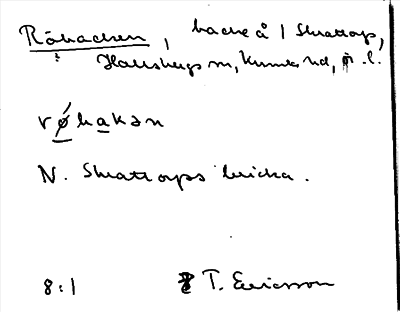 Röbacken, backe å 1 Skrattorp,
Hallsbergs sn, Kumla hd, Ö. l.
røbakən
N. Skrattorps lucka.
8:1 T. Ericsson